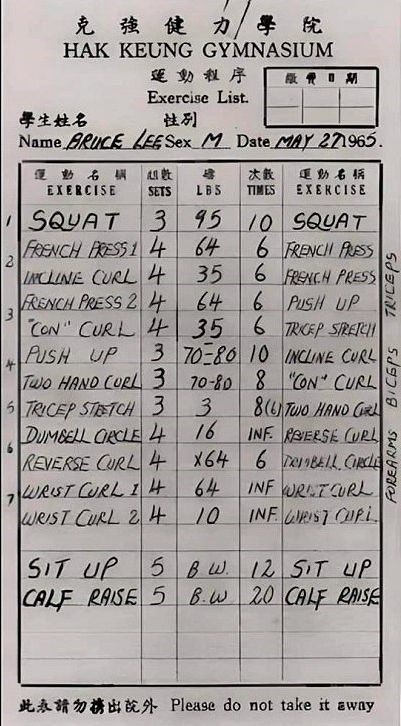 克強健力學院
HAK KEUNG GYMNASIUM
運動程序
繳費日期
Exercise List.
學生姓名 性別
Name BRUCE LEE Sex M Date MAY 27 1965.
運動名稱 組數 磅 次數 運動名稱
EXERCISE SETS LBS TIMES EXERCISE
1 SQUAT 3 95 10 SQUAT
2 FRENCH PRESS 1 4 64 6 FRENCH PRESS
INCLINE CURL 4 35 6 FRENCH PRESS
3 FRENCH PRESS 2 4 64 6 PUSH UP
"CON" CURL 4 35 6 TRICEP STRETCH
4 PUSH UP 3 70-80 10 INCLINE CURL
TWO HAND CURL 3 70-80 8 "CON" CURL
5 TRICEP STRETCH 3 3 8(6) TWO HAND CURL
6 DUMBELL CIRCLE 4 16 INF. REVERSE CURL
REVERSE CURL 4 x64 6 DUMBELL CIRCLE
7 WRIST CURL 1 4 64 INF WRIST CURL
WRIST CURL 2 4 10 INF. WRIST CURL
SIT UP 5 B.W. 12 SIT UP
CALF RAISE 5 B.W. 20 CALF RAISE
FOREARMS BICEPS TRICEPS
此表請勿携出院外 Please do not take it away